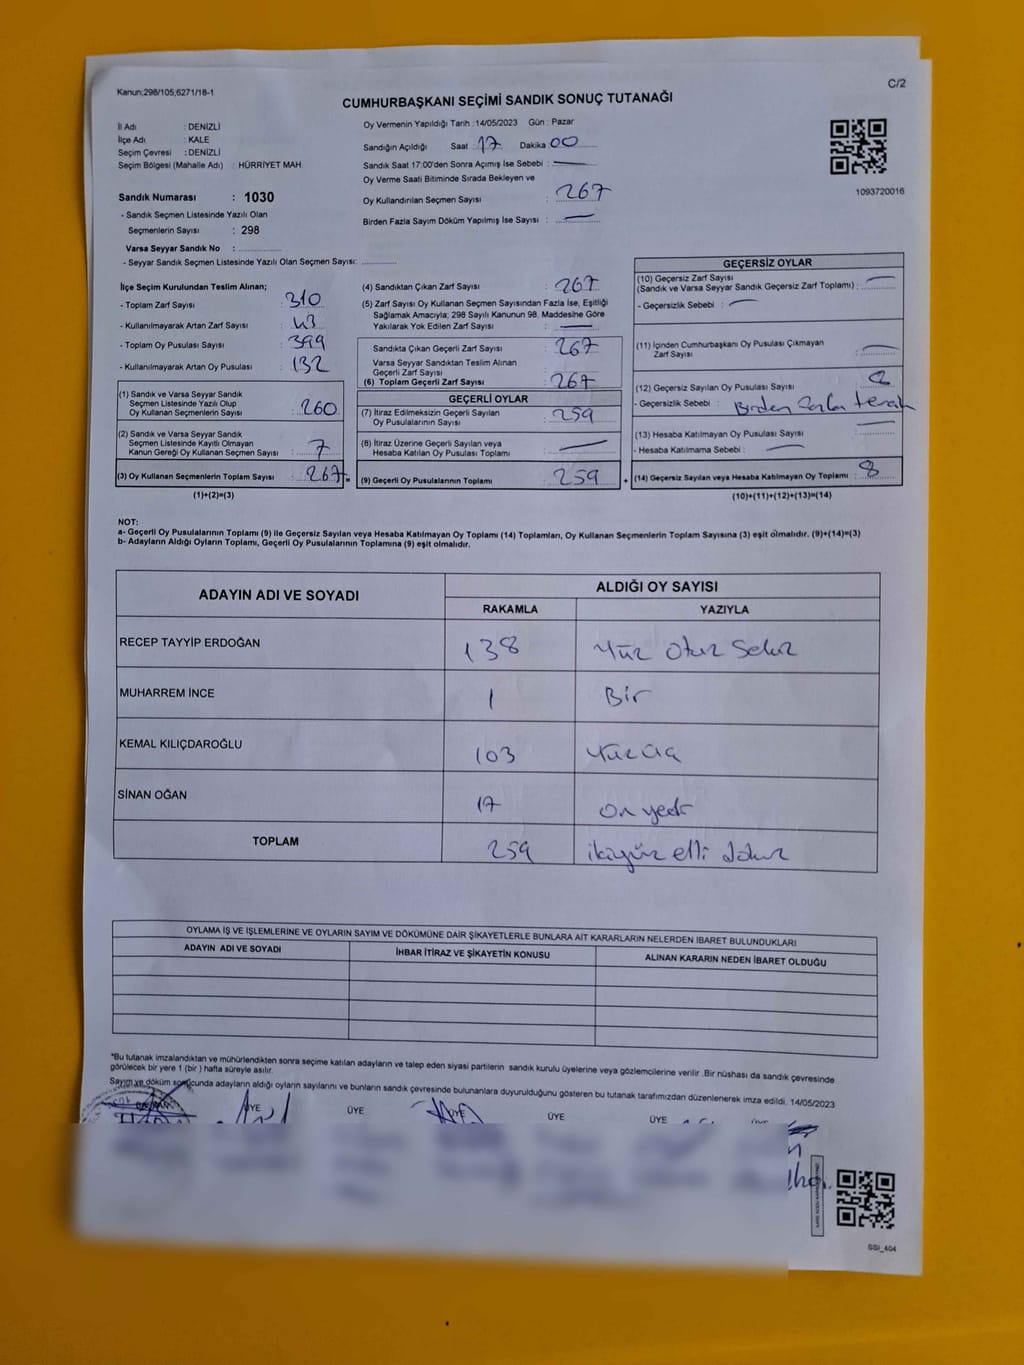 Kanun;298/105;6271/18-1
C/2
CUMHURBAŞKANI SEÇİMİ SANDIK SONUÇ TUTANAĞI
İl Adı : DENİZLİ
İlçe Adı : KALE
Seçim Çevresi : DENİZLİ
Seçim Bölgesi (Mahalle Adı) : HÜRRİYET MAH.
Sandık Numarası : 1030
- Sandık Seçmen Listesinde Yazılı Olan
Seçmenlerin Sayısı : 298
Varsa Seyyar Sandık No :
- Seyyar Sandık Seçmen Listesinde Yazılı Olan Seçmen Sayısı:
Oy Vermenin Yapıldığı Tarih :14/05/2023 Gün : Pazar
Sandığın Açıldığı Saat : 17 Dakika 00
Sandık Saat 17:00'den Sonra Açımış İse Sebebi :
Oy Verme Saati Bitiminde Sırada Bekleyen ve
Oy Kullandırılan Seçmen Sayısı : 267
Birden Fazla Sayım Döküm Yapılmış İse Sayısı :
1093720016
İlçe Seçim Kurulundan Teslim Alınan;
- Toplam Zarf Sayısı : 310
- Kullanılmayarak Artan Zarf Sayısı : 43
- Toplam Oy Pusulası Sayısı : 399
- Kullanılmayarak Artan Oy Pusulası : 132
(1) Sandık ve Varsa Seyyar Sandık
Seçmen Listesinde Yazılı Olup
Oy Kullanan Seçmenlerin Sayısı : 260
(2) Sandık ve Varsa Seyyar Sandık
Seçmen Listesinde Kayıtlı Olmayan
Kanun Gereği Oy Kullanan Seçmen Sayısı : 7
(3) Oy Kullanan Seçmenlerin Toplam Sayısı : 267 =
(1)+(2)=(3)
(4) Sandıktan Çıkan Zarf Sayısı : 267
(5) Zarf Sayısı Oy Kullanan Seçmen Sayısından Fazla İse, Eşitliği
Sağlamak Amacıyla; 298 Sayılı Kanunun 98. Maddesine Göre
Yakılarak Yok Edilen Zarf Sayısı :
Sandıkta Çıkan Geçerli Zarf Sayısı : 267
Varsa Seyyar Sandıktan Teslim Alınan
Geçerli Zarf Sayısı :
(6) Toplam Geçerli Zarf Sayısı : 267
GEÇERLİ OYLAR
(7) İtiraz Edilmeksizin Geçerli Sayılan
Oy Pusulalarının Sayısı : 259
(8) İtiraz Üzerine Geçerli Sayılan veya
Hesaba Katılan Oy Pusulası Toplamı :
(9) Geçerli Oy Pusulalarının Toplamı : 259 +
GEÇERSİZ OYLAR
(10) Geçersiz Zarf Sayısı
(Sandık ve Varsa Seyyar Sandık Geçersiz Zarf Toplamı) :
- Geçersizlik Sebebi :
(11) İçinden Cumhurbaşkanı Oy Pusulası Çıkmayan
Zarf Sayısı :
(12) Geçersiz Sayılan Oy Pusulası Sayısı : 8
- Geçersizlik Sebebi : Birden fazla tercih
(13) Hesaba Katılmayan Oy Pusulası Sayısı :
- Hesaba Katılmama Sebebi :
(14) Geçersiz Sayılan veya Hesaba Katılmayan Oy Toplamı : 8
(10)+(11)+(12)+(13)=(14)
NOT:
a- Geçerli Oy Pusulalarının Toplamı (9) ile Geçersiz Sayılan veya Hesaba Katılmayan Oy Toplamı (14) Toplamları, Oy Kullanan Seçmenlerin Toplam Sayısına (3) eşit olmalıdır. (9)+(14)=(3)
b- Adayların Aldığı Oyların Toplamı, Geçerli Oy Pusulalarının Toplamına (9) eşit olmalıdır.
ADAYIN ADI VE SOYADI
ALDIĞI OY SAYISI
RAKAMLA YAZIYLA
RECEP TAYYİP ERDOĞAN 138 Yüz Otuz Sekiz
MUHARREM İNCE 1 Bir
KEMAL KILIÇDAROĞLU 103 Yüz üç
SİNAN OĞAN 17 on yedi
TOPLAM 259 ikiyüz elli dokuz
OYLAMA İŞ VE İŞLEMLERİNE VE OYLARIN SAYIM VE DÖKÜMÜNE DAİR ŞİKAYETLERLE BUNLARA AİT KARARLARIN NELERDEN İBARET BULUNDUKLARI
ADAYIN ADI VE SOYADI İHBAR İTİRAZ VE ŞİKAYETİN KONUSU ALINAN KARARIN NEDEN İBARET OLDUĞU
*Bu tutanak imzalandıktan ve mühürlendikten sonra seçime katılan adayların ve talep eden siyasi partilerin sandık kurulu üyelerine veya gözlemcilerine verilir .Bir nüshası da sandık çevresinde
görülecek bir yere 1 (bir ) hafta süreyle asılır.
Sayım ve döküm sonucunda adayların aldığı oyların sayılarını ve bunların sandık çevresinde bulunanlara duyurulduğunu gösteren bu tutanak tarafımızdan düzenlenerek imza edildi. 14/05/2023
ÜYE ÜYE ÜYE ÜYE ÜYE
SSI_404